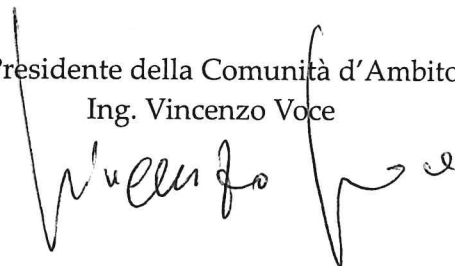 Presidente della Comunità d'Ambito
Ing. Vincenzo Voce
Vincenzo Voce